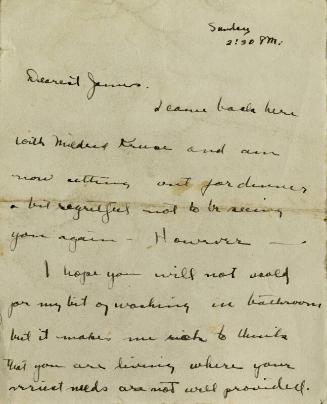 Sunday
2:30 P.M.
Dearest James.
I came back here
with Mildred Kruse and am
now setting out for dinner
a bit regretful not to be seeing
you again – However — .
I hope you will not scold
for my bit of washing in bathroom
but it makes me sick to think
that you are living where your
needs are not well provided.